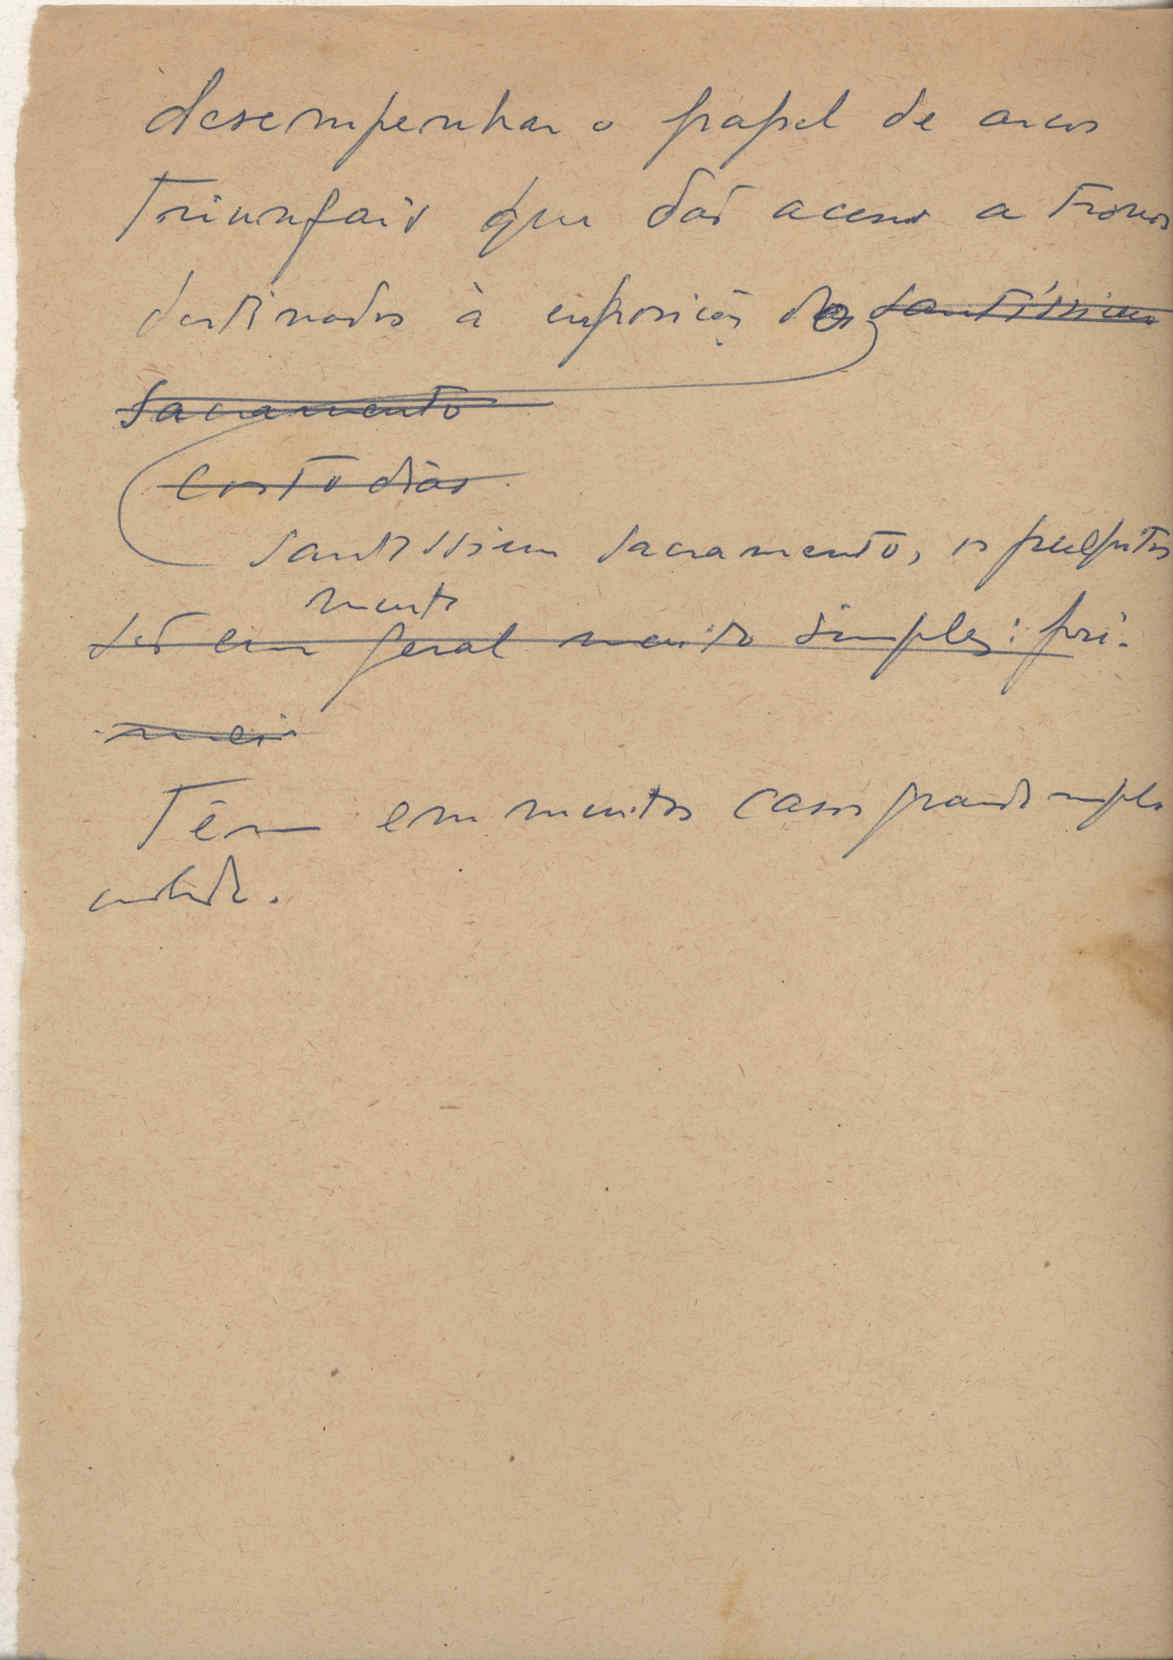 desempenhar o papel de arcos
triunfais que dão acesso a tronos
destinados à exposição do santíssimo
sacramento
custodias
santissimo sacramento, os pulpitos
são em geral muito simples: pri-
mei
Têm em muitos casos grande simpli
cidade.